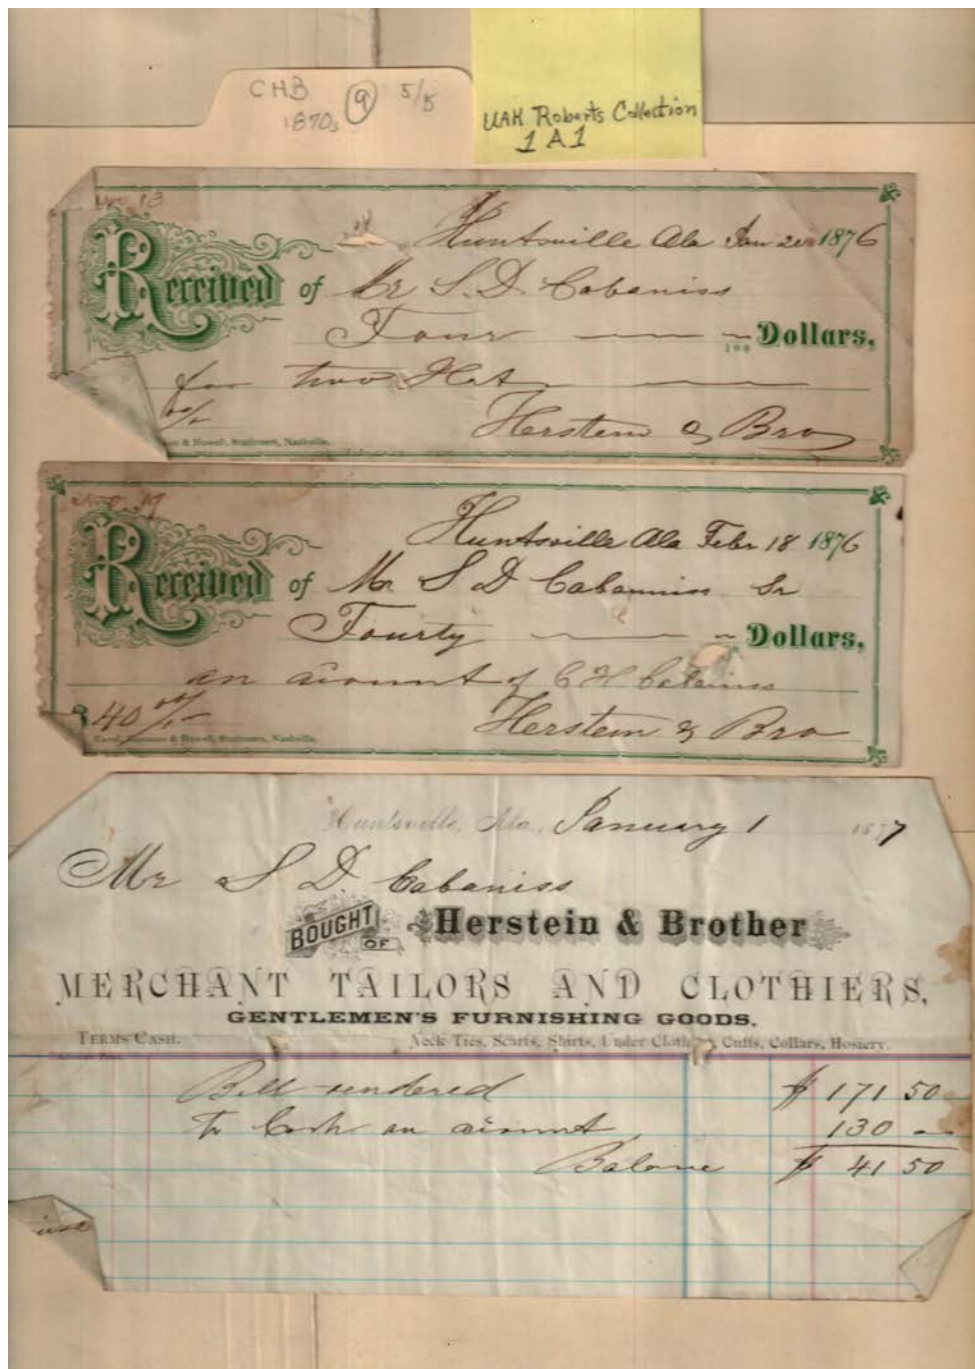 CHB 9 5/5
1870s
UAH Roberts Collection
1 A 1
Huntsville Ala Jan 1876
Received of Mr S. D. Cabaniss
Four Dollars,
100
for two Hat
& Howell, Stationers, Nashville.
Herstein & Bro
Huntsville Ala Febr 18 1876
Received of Mr S D Cabanniss Sr
Fourty Dollars,
an acount of C H Cabaniss
$40
Herstein & Bro
& Howell, Stationers, Nashville.
Huntsville, Ala., January 1 1877
Mr S D. Cabaniss
BOUGHT OF Herstein & Brother
MERCHANT TAILORS AND CLOTHIERS,
GENTLEMEN'S FURNISHING GOODS.
TERMS CASH. Neck Ties, Scarfs, Shirts, Under Clothing, Cuffs, Collars, Hosiery.
Bill rendered $ 171 50
To Cash an acount 130
Balance $ 41 50